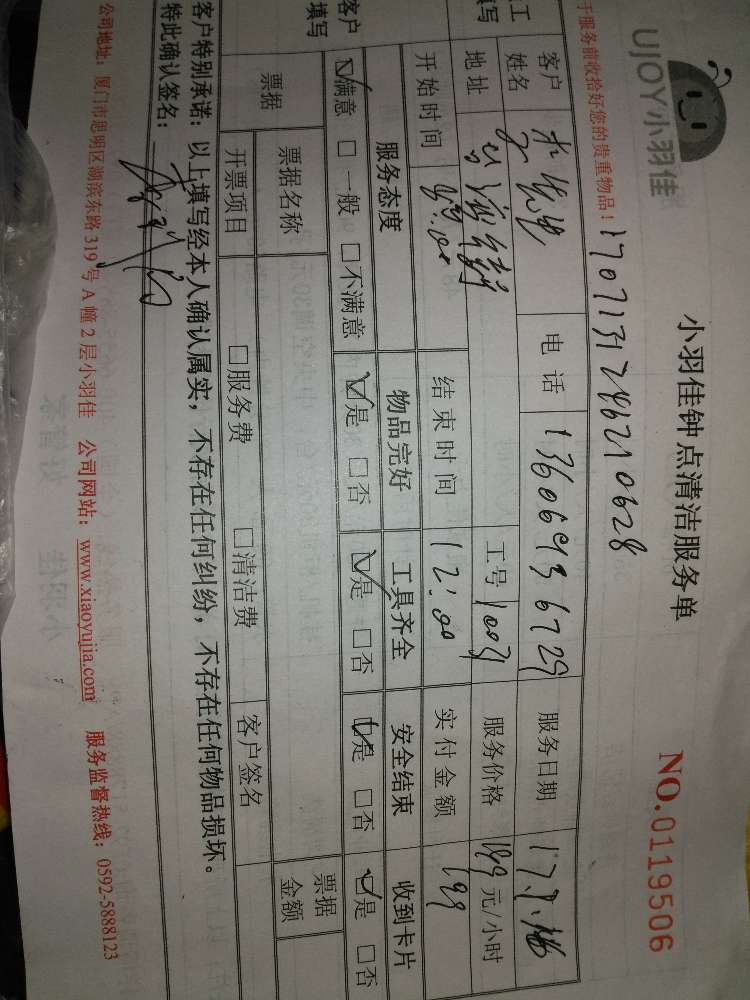 UJOY小羽佳
小羽佳钟点清洁服务单
NO.0119506
于服务前收拾好您的贵重物品！
客户姓名 电话 13606936729 服务日期
地址 工号 服务价格 元/小时
开始时间 结束时间 12:00 实付金额 199
服务态度 物品完好 工具齐全 安全结束 收到卡片
客户填写
☑满意 □一般 □不满意 ☑是 □否 ☑是 □否 ☑是 □否 ☑是 □否
票据 票据名称 票据金额
开票项目 □服务费 □清洁费 客户签名
客户特别承诺：以上填写经本人确认属实，不存在任何纠纷，不存在任何物品损坏。
特此确认签名：
公司地址：厦门市思明区湖滨东路319号A幢2层小羽佳 公司网站：www.xiaoyujia.com 服务监督热线：0592-5888123